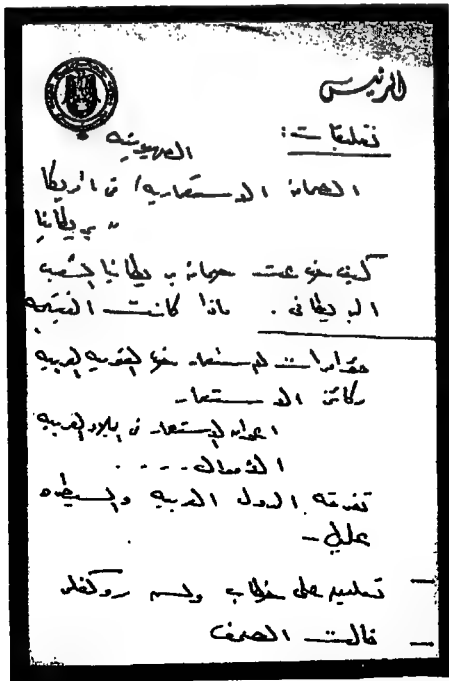 الرئيس
تعليقات:
الصهيونيه
الصحافة الاستعماريه / فى امريكا
" بريطانيا
كيف خدعت صحافة بريطانيا الشعب
البريطانى . ماذا كانت النتيجه
مؤامرات الاستعمار ضد القوميه العربيه
ركائز الاستعمار
اعوان الاستعمار فى البلاد العربيه
العمال ....
تفرقه الدول العربيه والسيطره
على -
– تعليق على خطاب ولسم روكفلر
– قالت الصحف